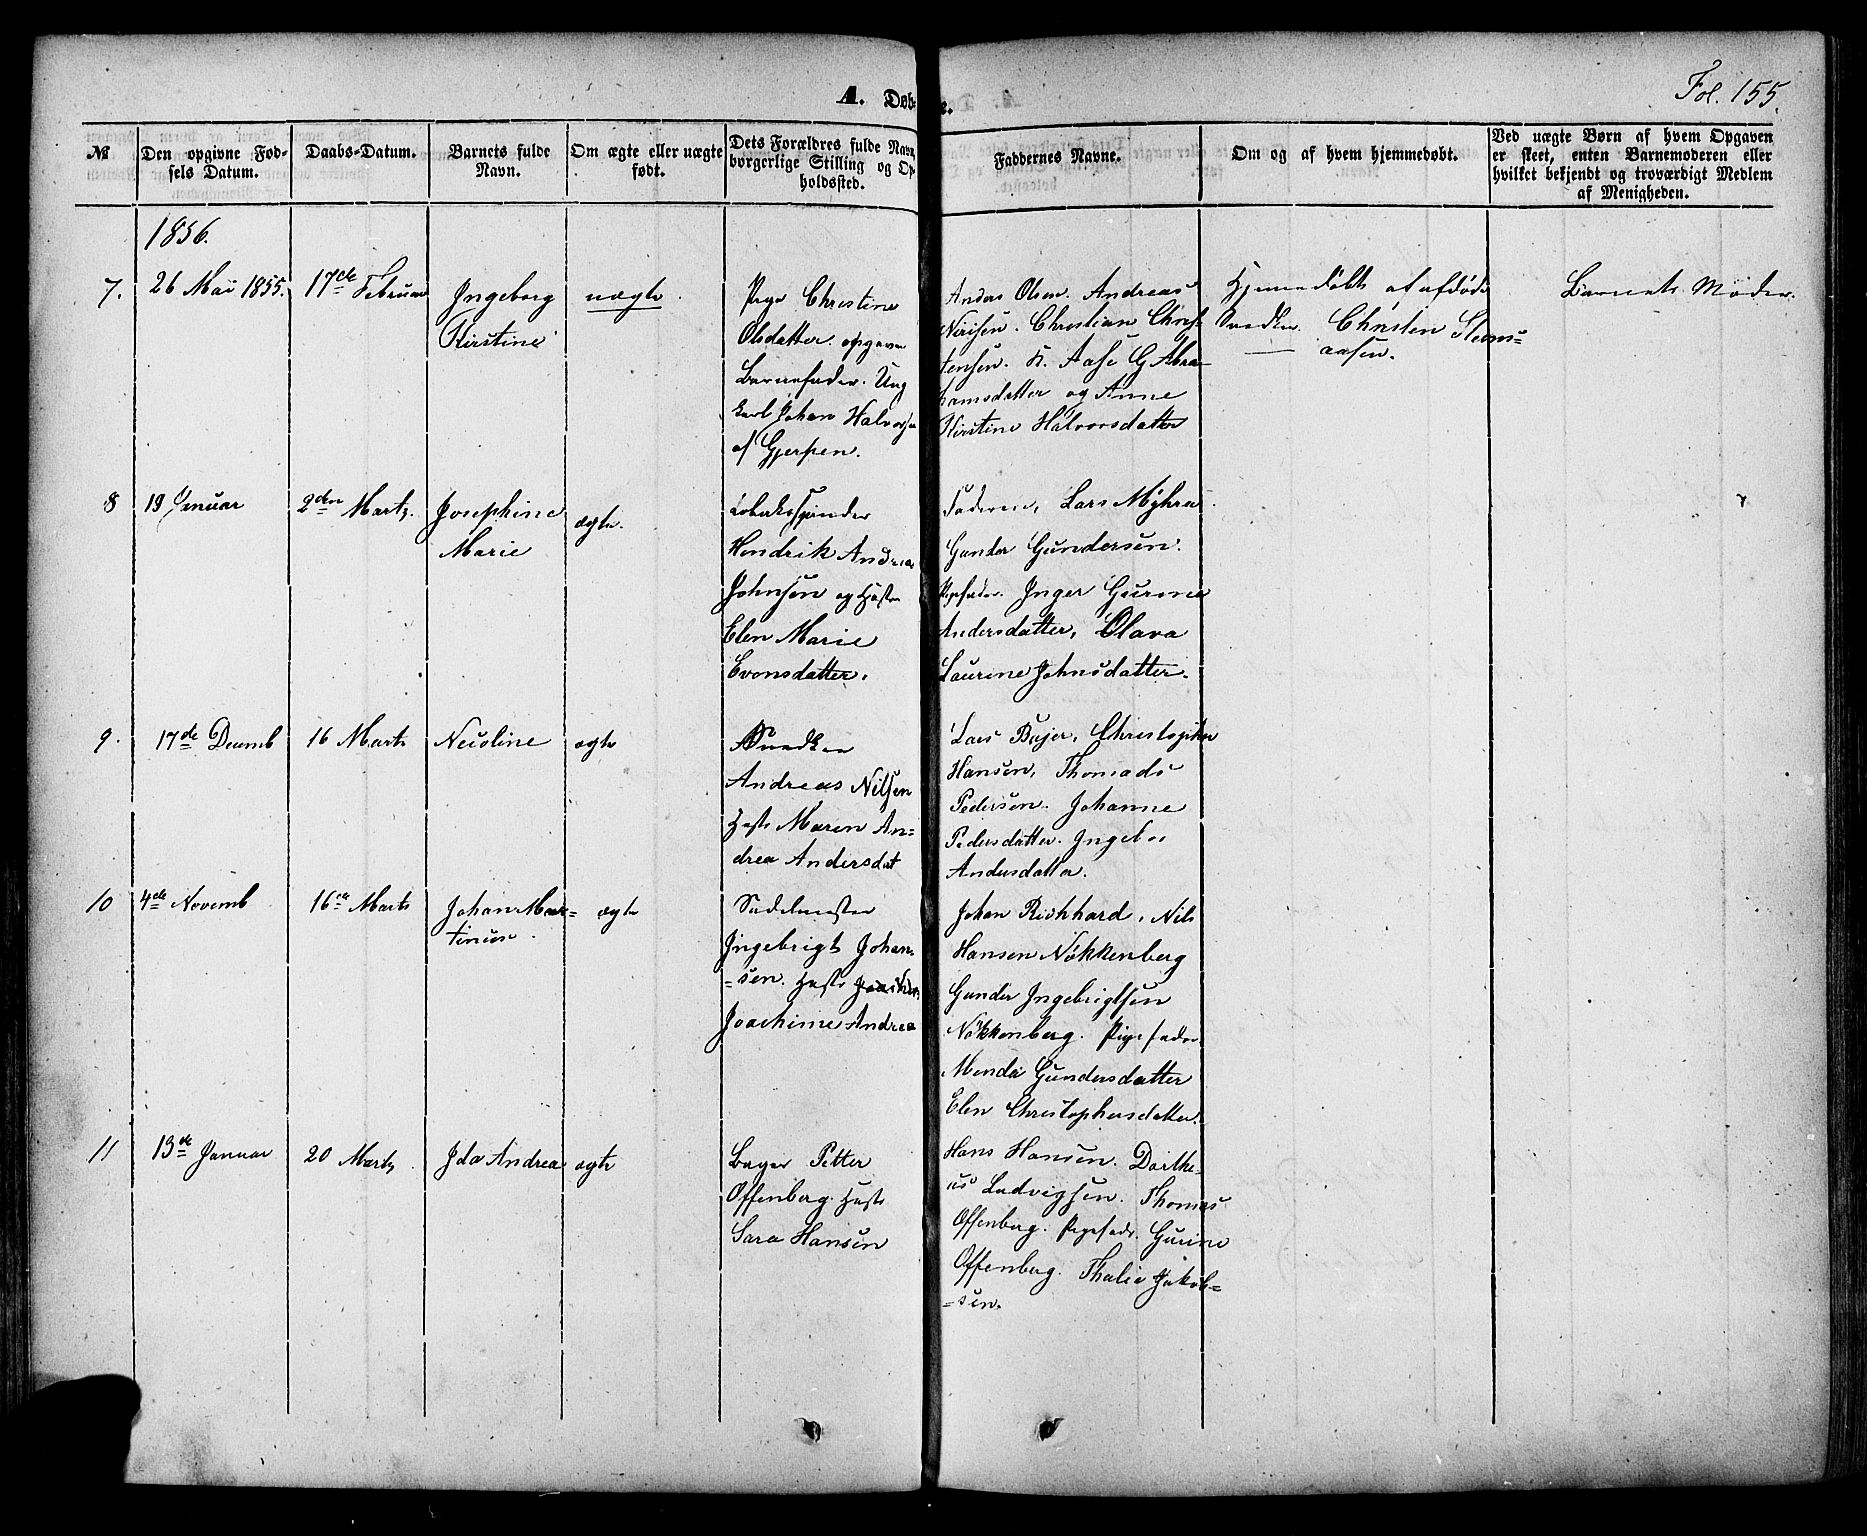 Fol. 155.
A. Døb-
e.
№
Den opgivne Fød-
sels Datum.
Daabs-Datum.
Barnets fulde
Navn.
Om ægte eller uægte
født.
Dets Forældres fulde Navn,
borgerlige Stilling og Op-
holdssted.
Faddernes Navne.
Om og af hvem hjemmedøbt.
Ved uægte Børn af hvem Opgaven
er skeet, enten Barnemoderen eller
hvilket bekjendt og troværdigt Medlem
af Menigheden.
1856.
7.
26 Mai 1855.
17de Februar
Ingeborg
Kirstine
uægte.
Pige Christine
Olsdatter. opgiven
Barnefader. Ung
karl Johan Halvorsen
af Gjerpen.
Anders Olsen. Andreas
Nirisen. Christian Chris-
tensen. K. Aase G Abra-
hamsdatter og Anne
Kirstine Halvorsdatter
Hjemmedøbt af afdøde
Snedker Christen Steens-
aasen.
Barnets Moder.
8
19 Januar
2den Marts.
Josephine
Marie
ægte.
Tobaksspinder
Hendrik Andreas
Johnsen og Hustru
Elen Marie
Evensdatter.
Faderen, Lars Myhre.
Gunder Gundersen.
Pigefadr. Inger Gurine
Andersdatter, Olava
Laurine Johnsdatter.
9.
17de Decemb
16 Marts
Nicoline
ægte
Snedker
Andreas Nilsen
Hust. Maren An-
drea Andersdat
Lars Bojer, Christopher
Hansen, Thomads
Pedersen. Johanne
Pedersdatter. Ingebor
Andersdatter.
10
4de Novemb
16de Marts
Johan Mar-
tinus.
ægte
Sadelmester
Ingebrigt Johan-
=sen. Hustr
Joachime Andrea
Johan Richhard, Nils
Hansen Nøkkenberg
Gunder Ingebrigtsen
Nøkkenberg. Pigefadr.
Mendi Gundersdatter
Elen Christophersdatter.
11
13de Januar
20 Marts.
Ida Andrea
ægte
Bager Petter
Offenberg. Hustr
Sara Hansen
Hans Hansen. Dorthe-
us Ludvigsen. Thomas
Offenberg. Pigefadr. Gurine
Offenberg. Thalie Jakob-
=sen.